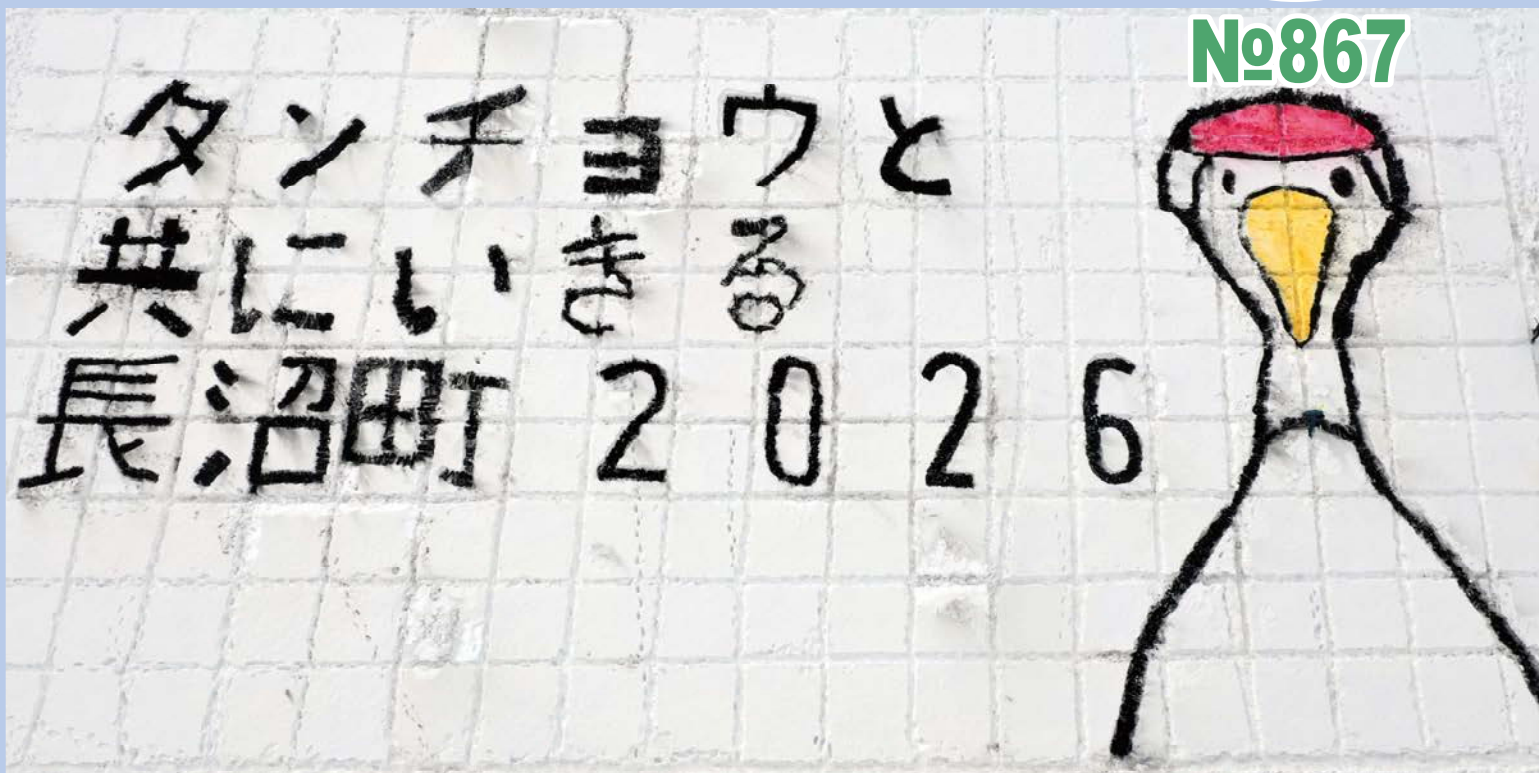 №867
タンチョウと
共にいきる
長沼町 2026